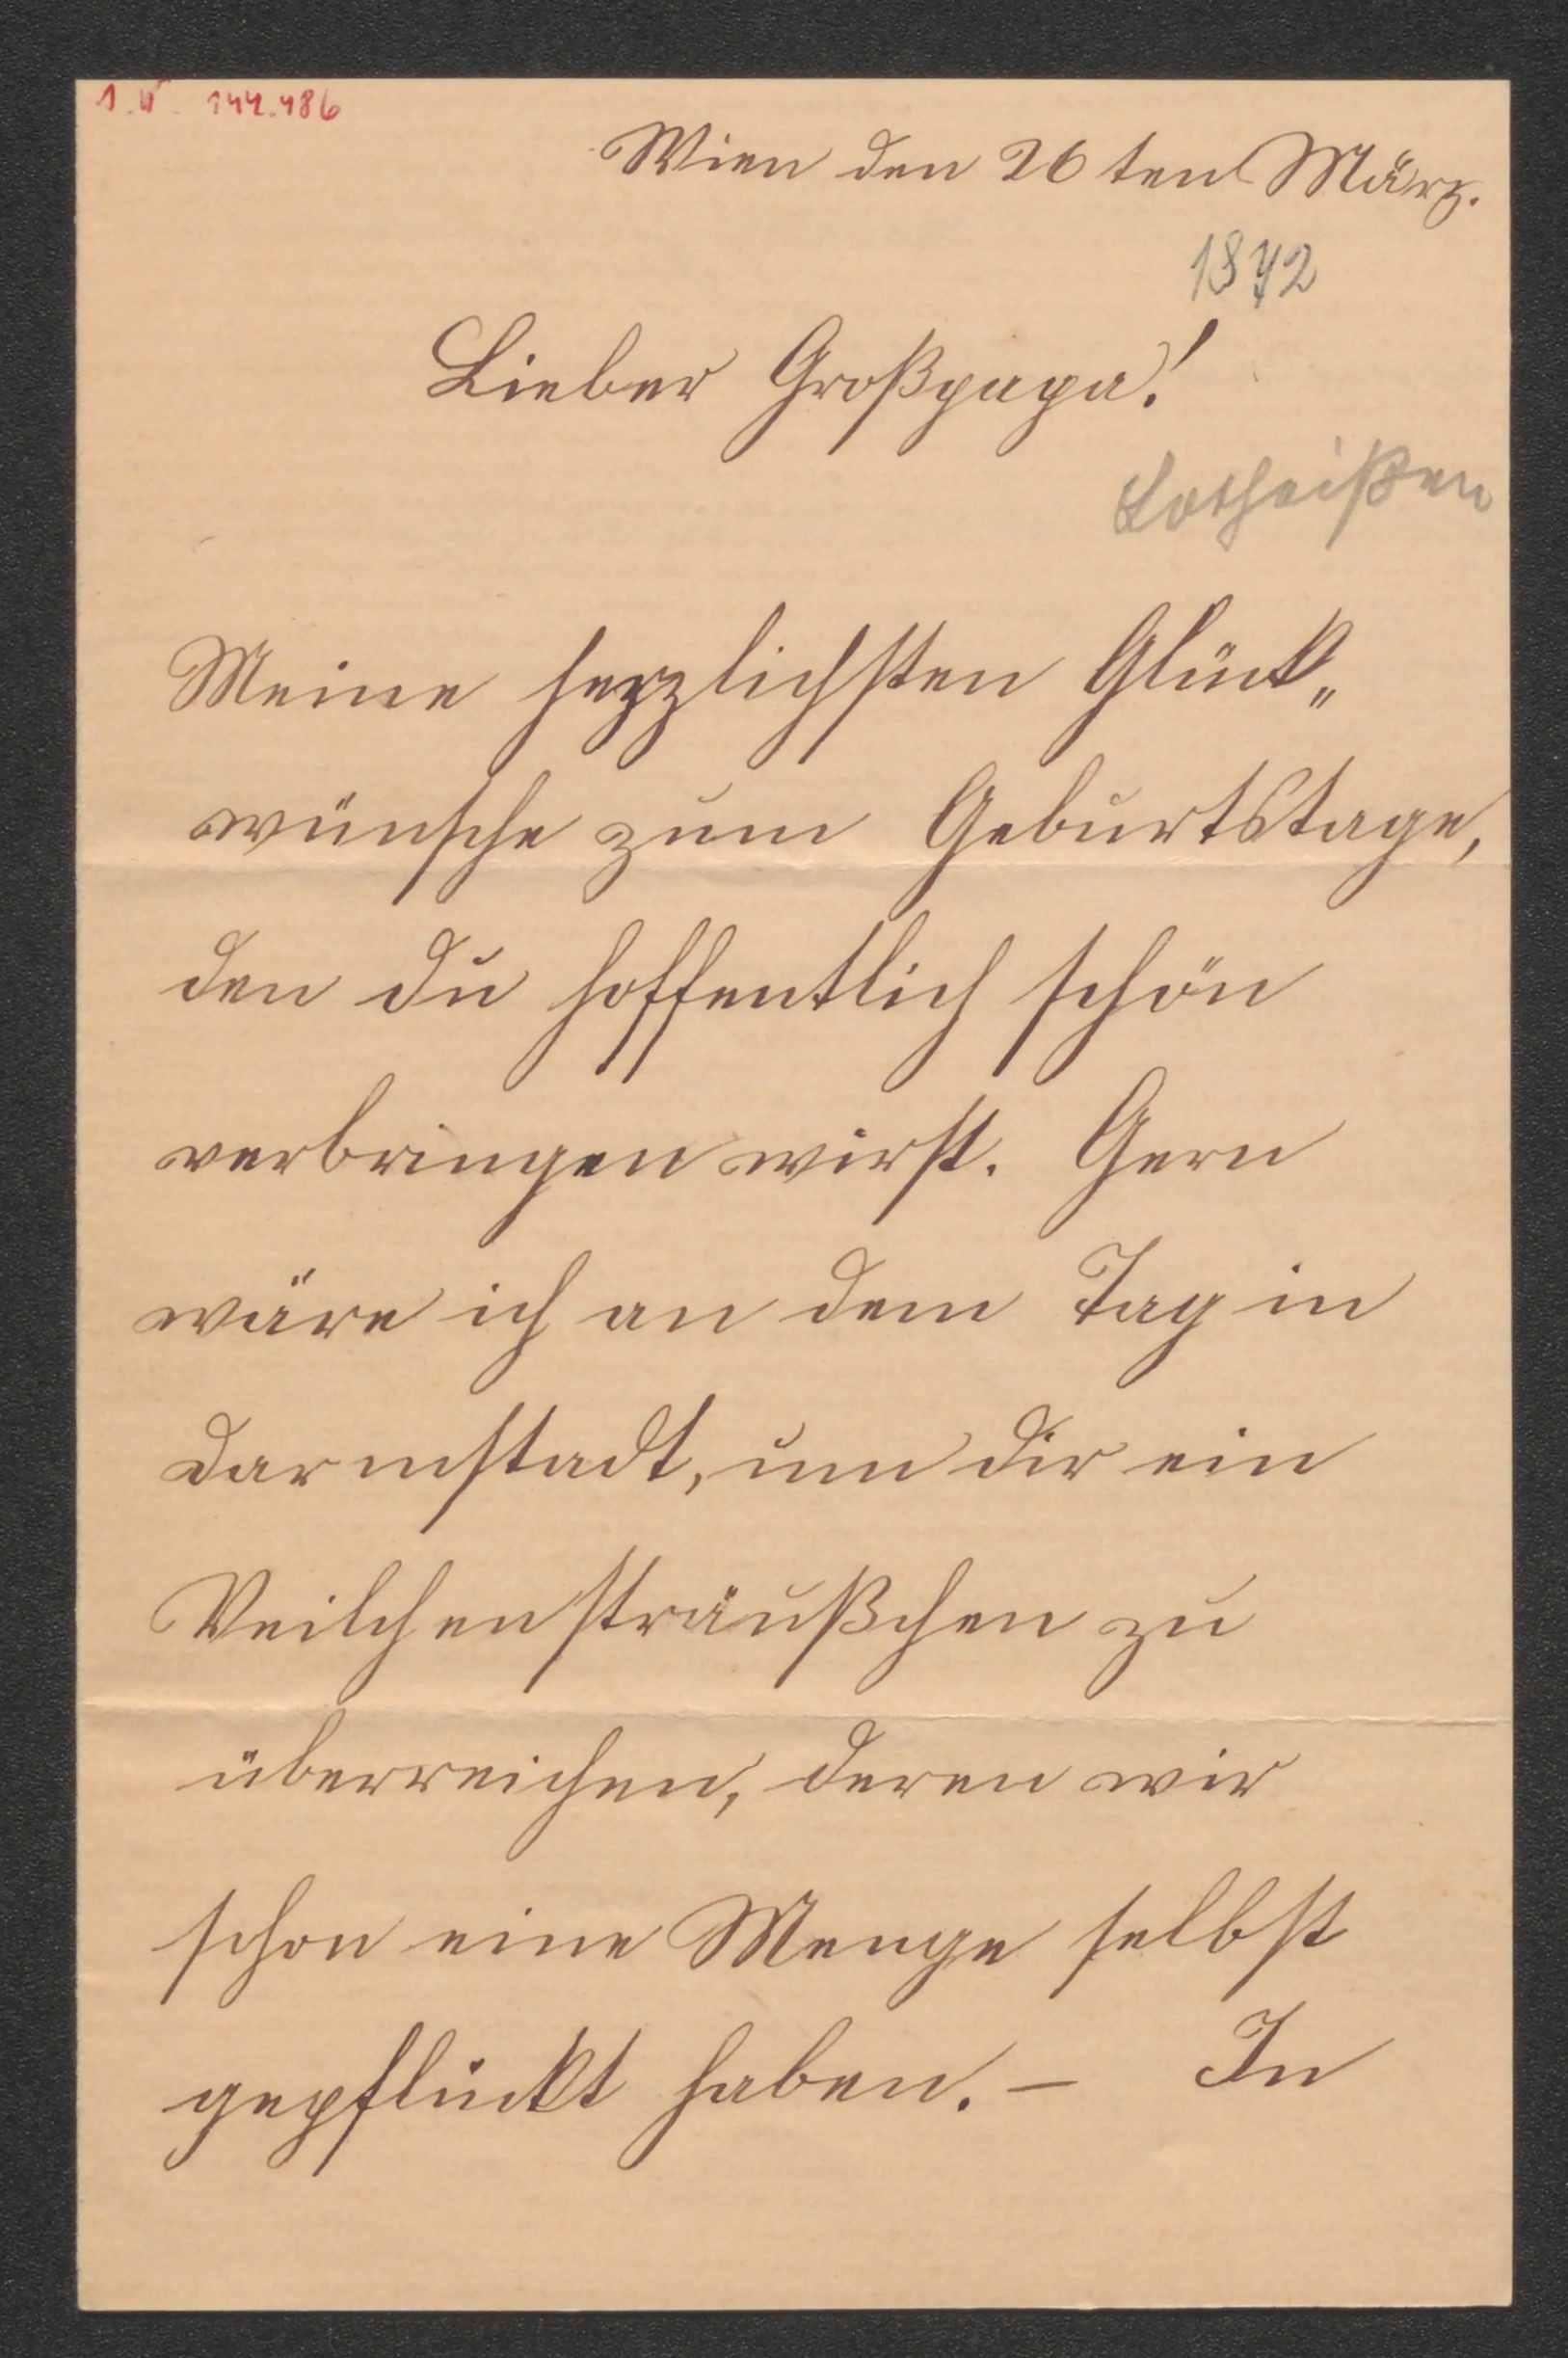 I.N. 144.486
Wien den 26ten März.
1872
Lieber Großpapa!
Lotheißen
Meine herzlichsten Glück„
wünsche zum Geburtstage,
den du hoffentlich schön
verbringen wirst. Gern
wäre ich an dem Tag in
Darmstadt, um dir ein
Veilchensträußchen zu
überreichen, deren wir
schon eine Menge selbst
gepflückt haben. – In